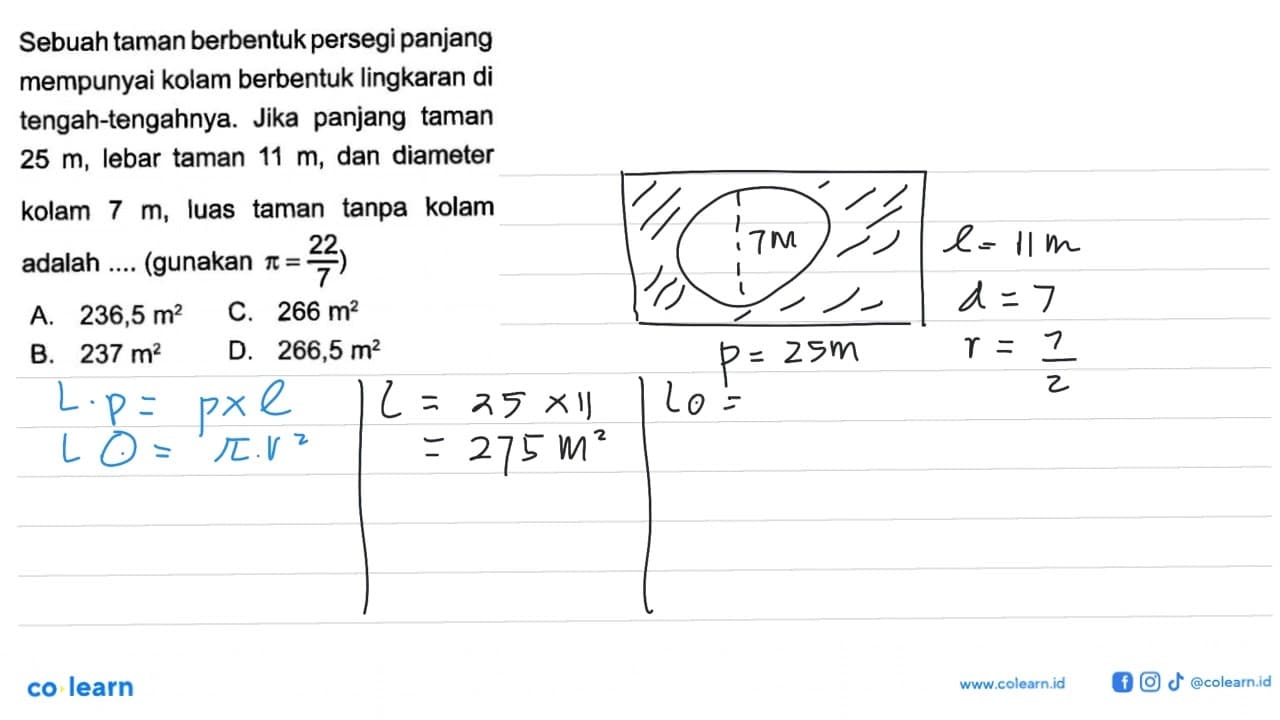 Sebuah taman berbentuk persegi panjang
mempunyai kolam berbentuk lingkaran di
tengah-tengahnya. Jika panjang taman
25 m, lebar taman 11 m, dan diameter
kolam 7 m, luas taman tanpa kolam
adalah .... (gunakan π = 22/7)
A. 236,5 m² C. 266 m²
B. 237 m² D. 266,5 m²
7M
l = 11 m
d = 7
r = 7/2
p = 25m
L.p = p x l
L O = π.r²
l = 25 x 11
= 275 m²
LO =
co learn
www.colearn.id
@colearn.id